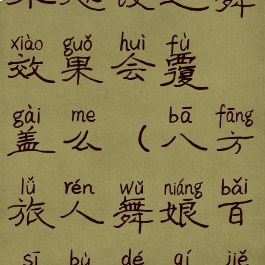 xiào guǒ huì fù
效果会覆
gài me bā fāng
盖么（八方
lǚ rén wǔ niáng bǎi
旅人舞娘百
sī bù dé qí jiě